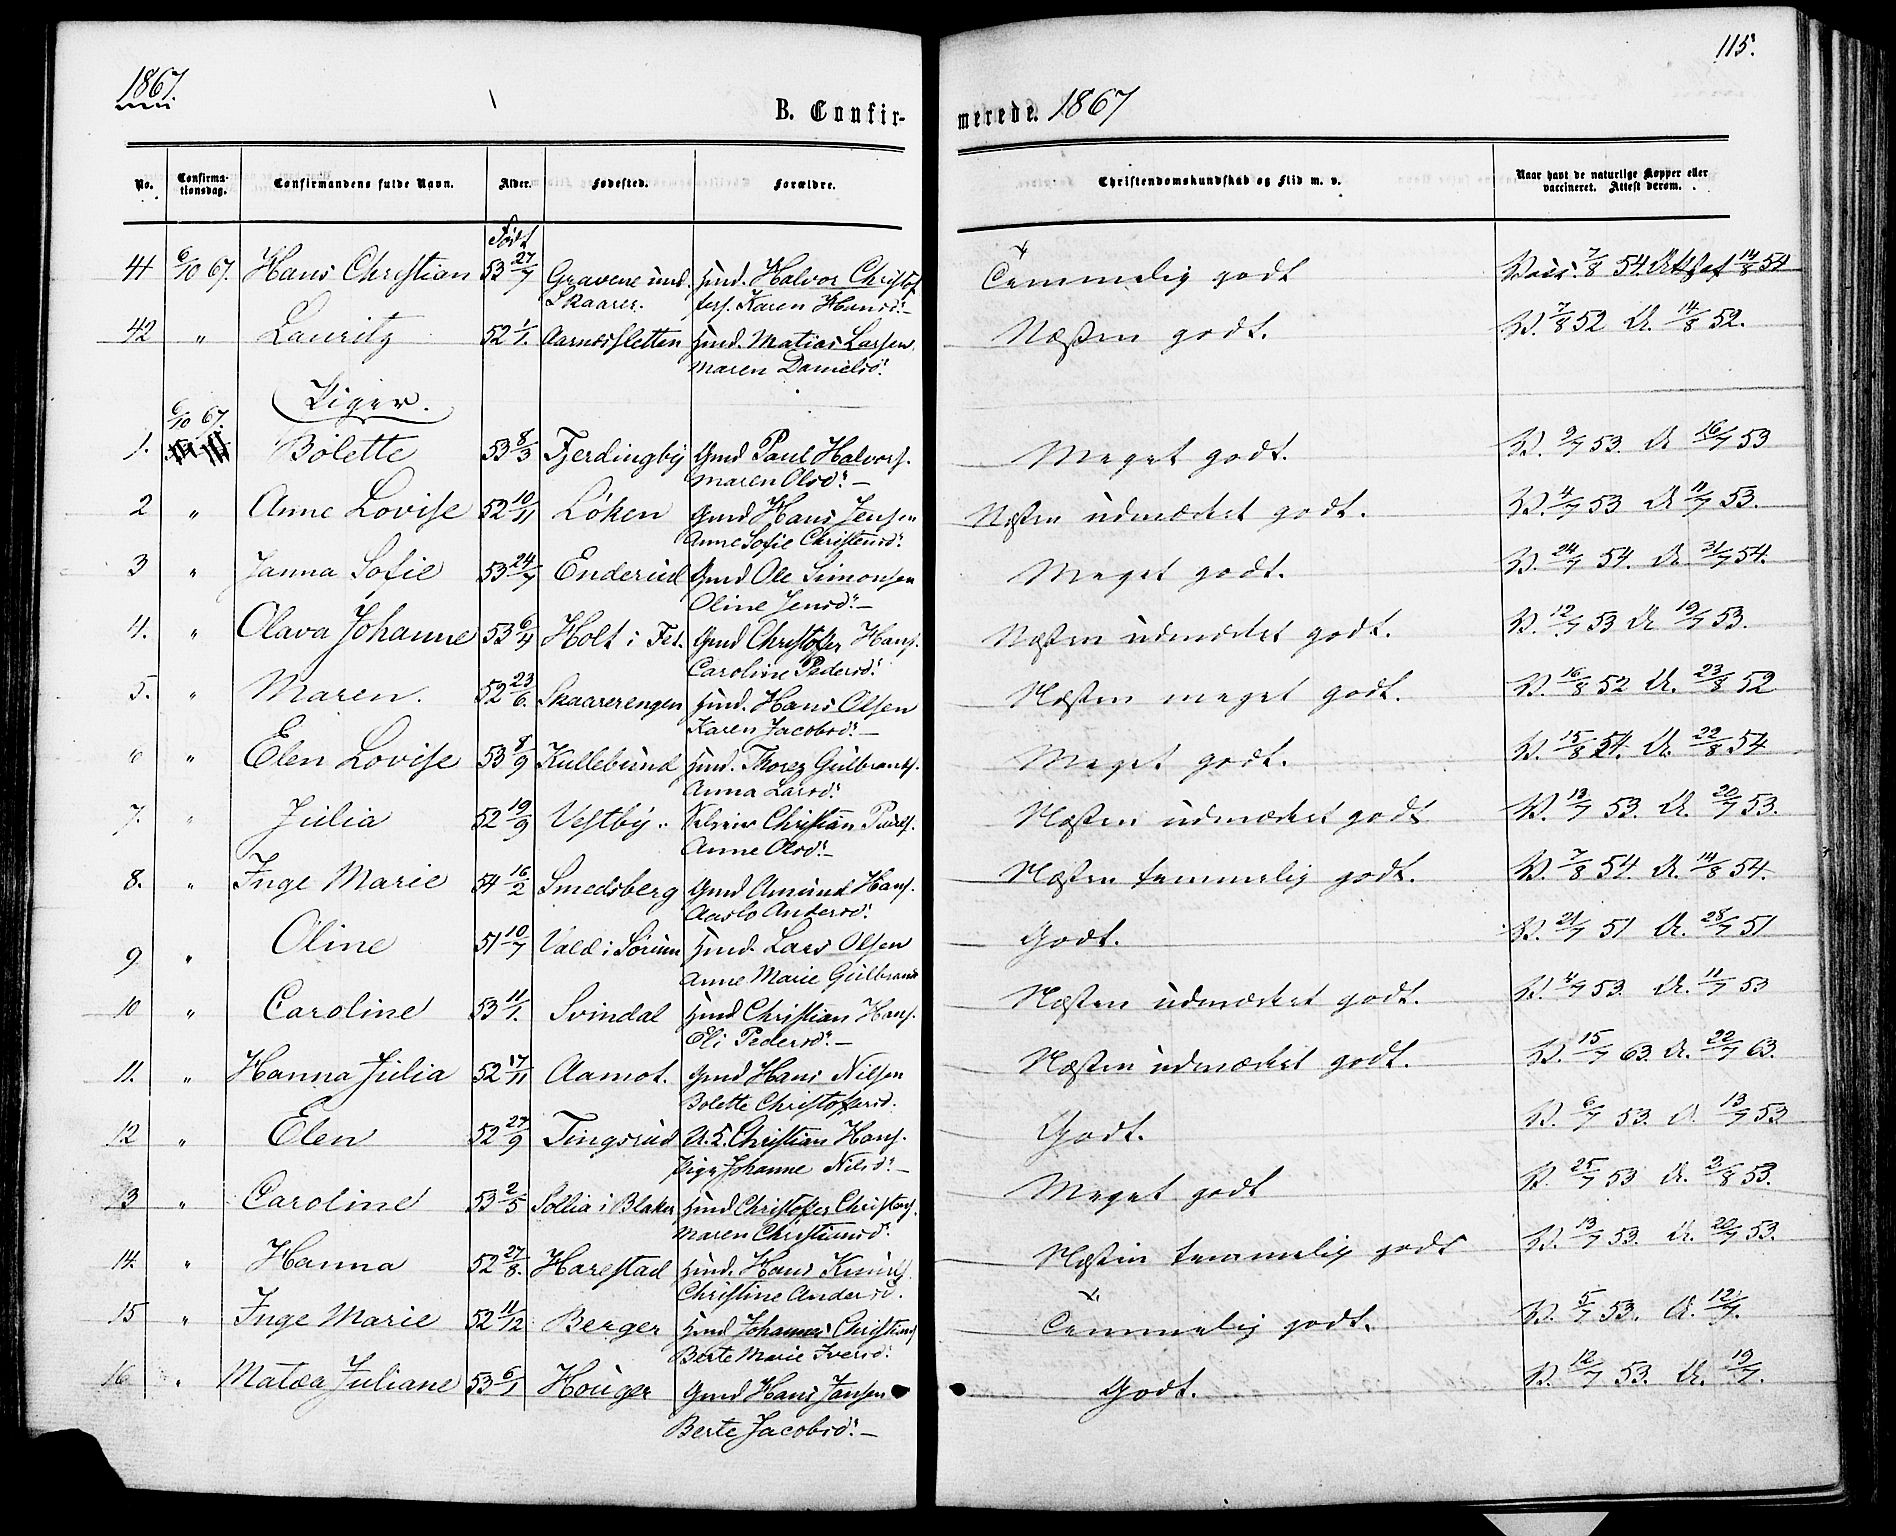 115.
1867.
B. Confir-
merede. 1867
No.
Confirma-
tionsdag.
Confirmandens fulde Navn.
Alder.
Fødested.
Forældre.
Christendomskundskab og Flid m. v.
Naar havt de naturlige Kopper eller
vaccineret. Attest derom.
Født
41 6/10 67. Hans Christian 53 27/7 Gravene und. Hmd. Halvor Christof Temmelig godt Vacc. 7/8 54. Att. af 14/8 54
Skaarer. fers. Karen Hansd:
42 " Lauritz 52 1/1. Aarnesfletten Hmd. Matias Larsen. Næsten godt. V. 7/8 52 A. 14/8 52.
Maren Danielsd:
Piger.
6/10 67.
1. Bolette 53 8/3 Fjerdingby Gmd Paul Halvors. Meget godt. V. 9/7 53. A 16/7 53
Maren Olsd:
2 " Anne Lovise 52 10/11 Løken Gmd Hans Jensen Næsten udmærket godt. V. 4/7 53 A 11/7 53.
Anne Sofie Christensd:
3 " Janna Sofie 53 24/7 Enderud Gmd Ole Simonsen Meget godt. V. 24/7 54. A. 31/7 54.
Oline Jensd:
4. " Olava Johanne 53 6/4 Holt i Fet. Gmd Christofer Hans. Næsten udmærket godt. V. 12/7 53 A 19/7 53.
Caroline Pedersd:
5. " Maren. 52 23/6. Skaarerengen Hmd. Hans Olsen Næsten meget godt. V. 16/8 52 A. 23/8 52
Karen Jacobsd:
6 " Elen Lovise 53 8/9 Kullebund Hmd. Thorez Gulbrands. Meget godt. V. 15/8 54. A. 22/8 54
Anna Larsd:
7. " Julia 52 19/9 Vestby. Christian Peders. Næsten udmærket godt V. 13/7 53. A. 20/7 53.
Anne Olsd:
8. " Inge Marie 54 16/2 Smedsberg Gmd Amund Hans. Næsten temmelig godt. V. 7/8 54. A. 14/8 54.
Aaslo Andersd:
9 " Oline 51 10/7 Vald i Sørum Hmd. Lars Olsen Godt. V. 21/7 51 A. 28/7 51
Anne Marie Gulbrand
10 " Caroline 53 11/1. Svindal Hmd Christian Hans. Næsten udmærket godt. V. 4/7 53. A. 11/7 53
Eli Pedersd:
11. " Hanna Julia 52 17/11 Aamot. Gmd Hans Nilsen Næsten udmærket godt. V. 15/7 63. A. 22/7 63.
Bolette Christofersd.
12 " Elen 52 27/9 Tingsrud U. K. Christian Hans. Godt. V. 6/7 53. A 13/7 53
Pige Johanne Nilsd:
13 " Caroline 53 2/5 Sollia i Blaker Hmd Christofer Christens. Meget godt V. 25/7 53 A. 2/8 53.
Maren Christiansd:
14. " Hanna 52 27/8. Harestad Hmd. Hans Knuds. Næsten temmelig godt V. 13/7 53. A. 20/7 53.
Christine Andersd.
15 " Inge Marie 52 11/12 Berger Hmd Johannes Christians Temmelig godt. V. 5/7 53. A. 12/7.
Berte Marie Iversd:
16 " Matea Juliane 53 6/1 Houger Gmd Hans Jansen Godt. V. 12/7 53. A. 19/7.
Berte Jacobsd: